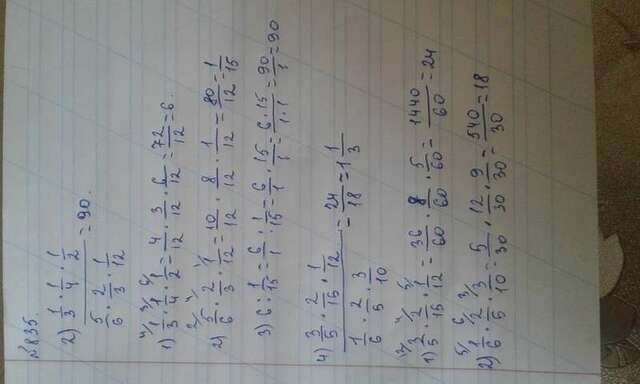 №835.
2) (1/3 · 1/4 · 1/2) / (5/6 · 2/3 · 1/12) = 90.
1) ⁴/1/3 · ³/1/4 · ⁶/1/2 = 4/12 · 3/12 · 6/12 = 72/12 = 6.
2) ²/5/6 · ⁴/2/3 · ¹/1/12 = 10/12 · 8/12 · 1/12 = 80/12 = 1/15
3) 6 : 1/15 = 6/1 · 1/15 = 6/1 · 15/1 = 6·15/1·1 = 90/1 = 90
4) (3/5 · 2/15 · 1/12) / (1/6 · 2/5 · 3/10) = 24/18 = 1 1/3
1) ¹²/3/5 · ⁴/2/15 · ⁵/1/12 = 36/60 · 8/60 · 5/60 = 1440/60 = 24
2) ⁵/1/6 · ⁶/2/5 · ³/3/10 = 5/30 · 12/30 · 9/30 = 540/30 = 18